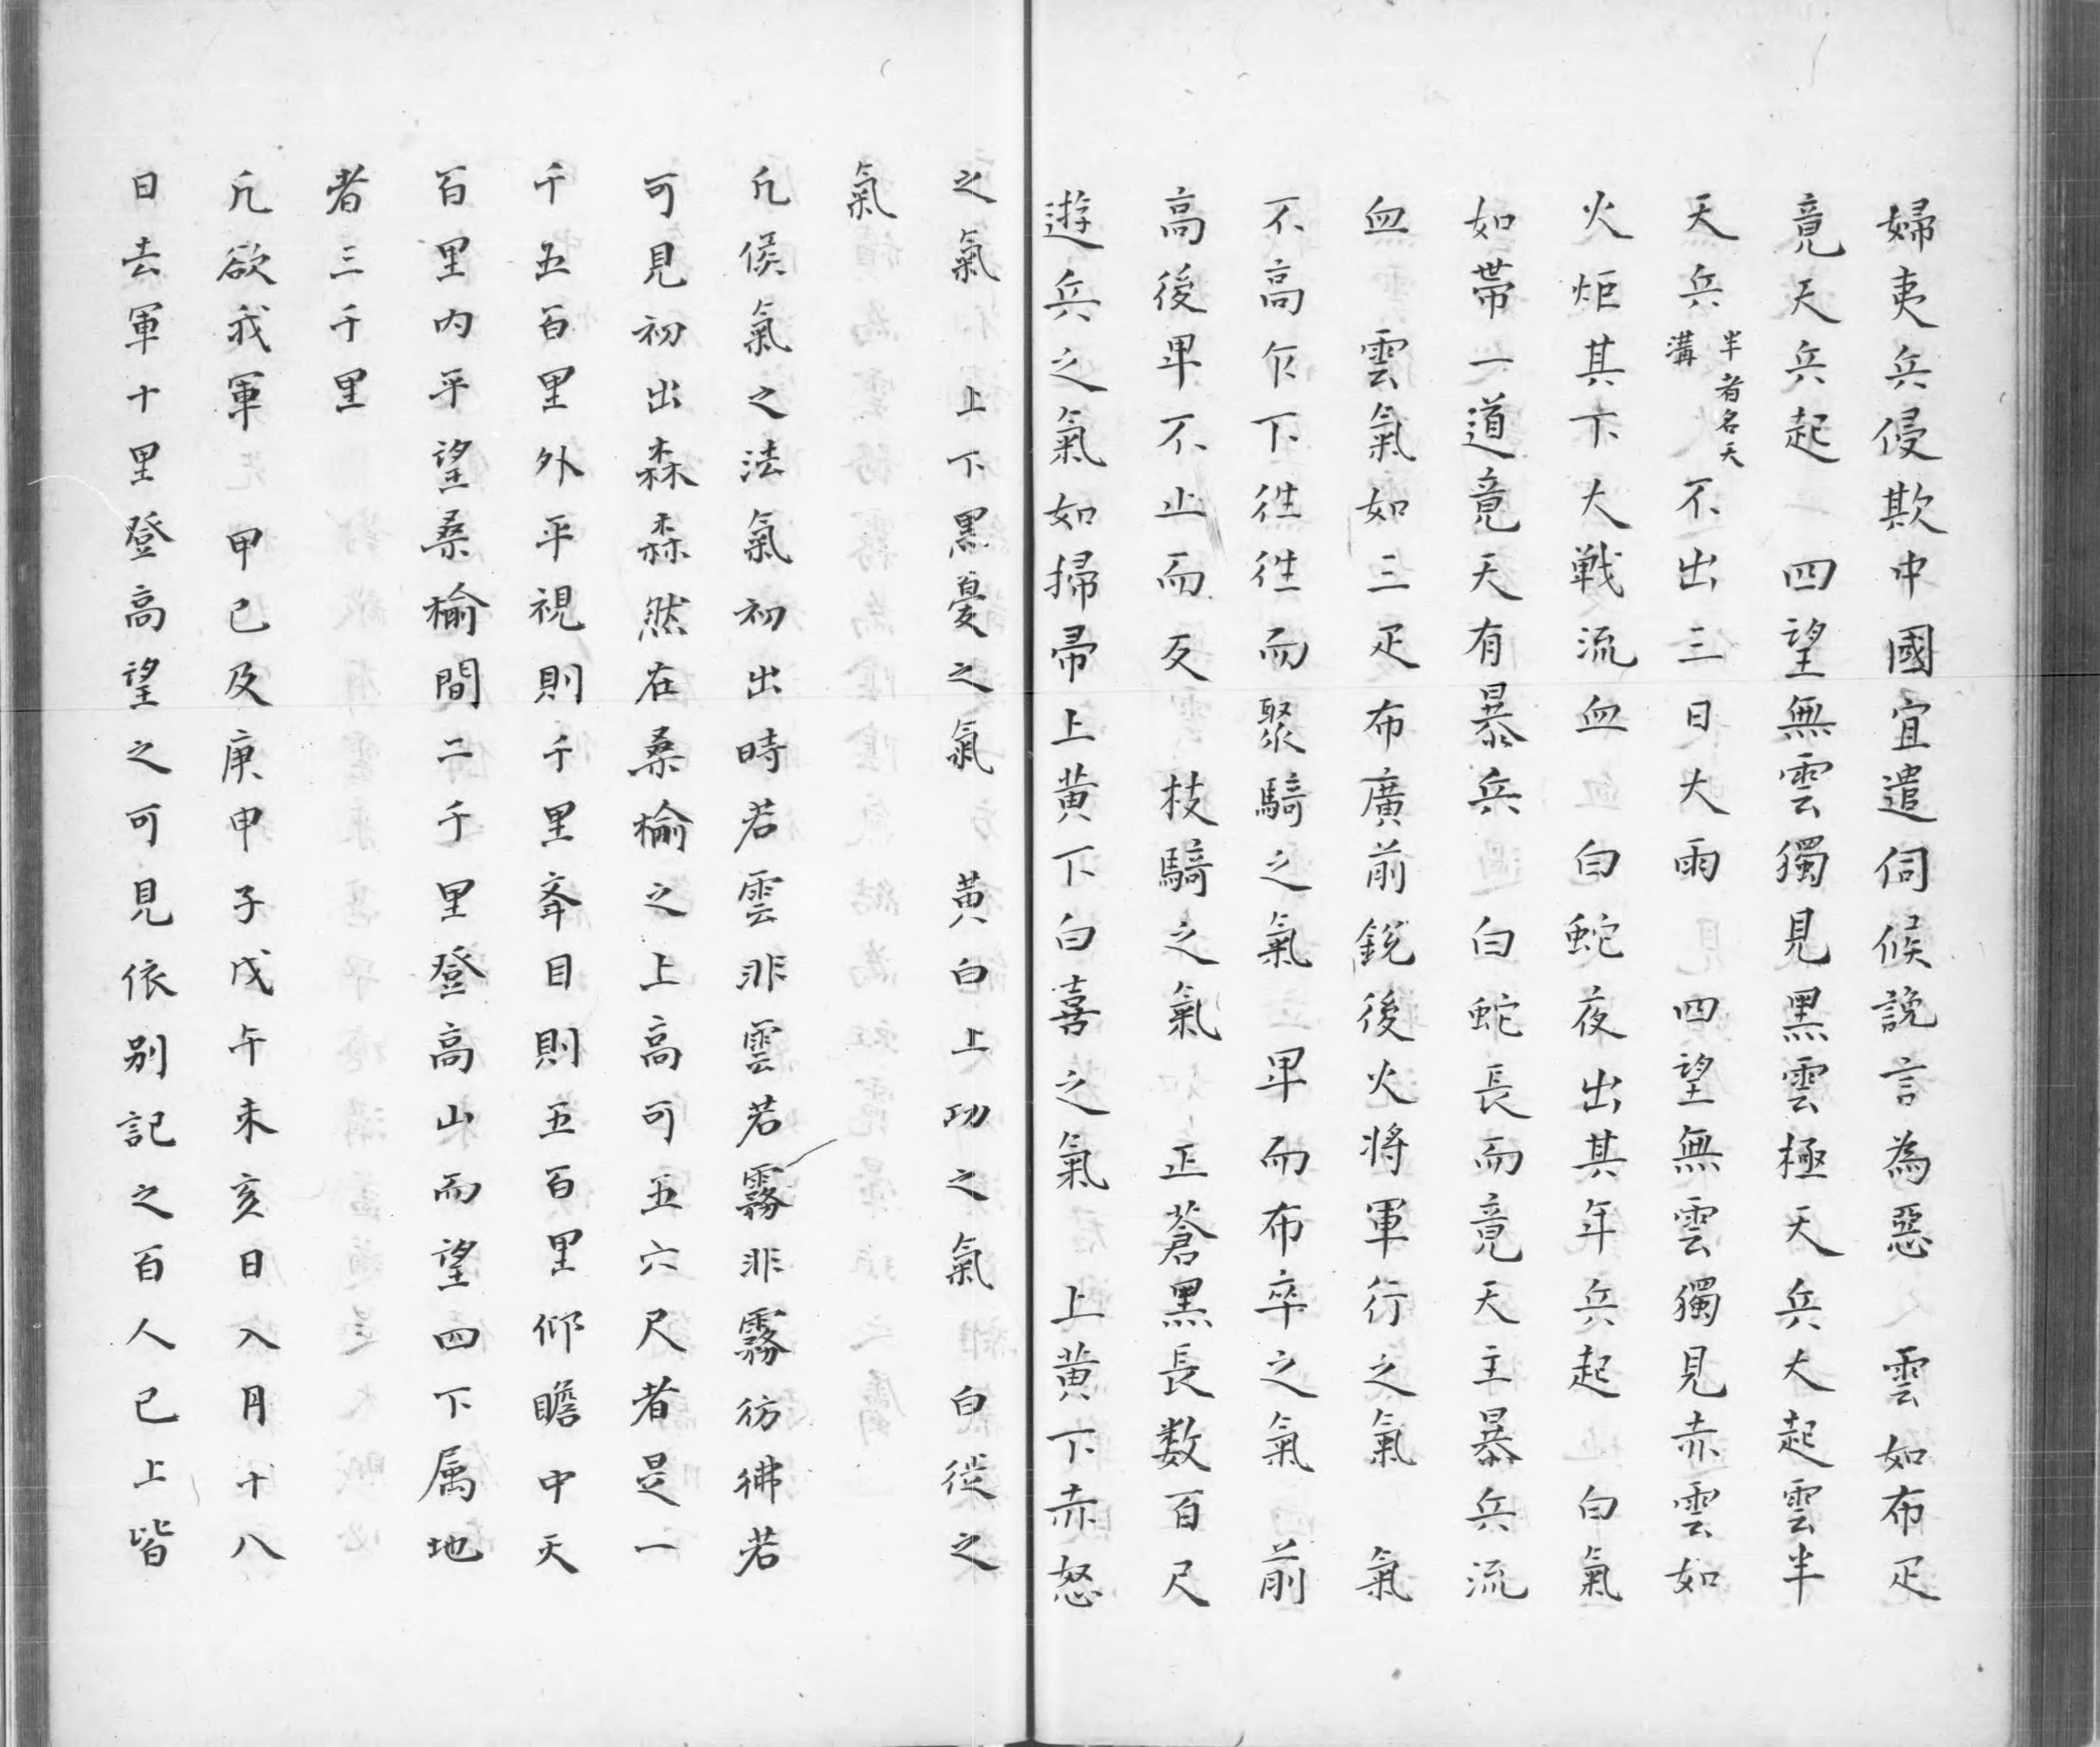 婦夷兵侵欺中國宜遣伺候説言為惡　雲如布疋
竟天兵起　四望無雲獨見黒雲極天兵大起雲半
天兵半者名天溝不出三日大雨　四望無雲獨見赤雲如
火炬其下大戰流血　白蛇夜出其年兵起　白氣
如帯一道竟天有暴兵　白蛇長而竟天主暴兵流
血　雲氣如三疋布廣前鋭後大将軍行之氣　氣
不高乍下徃徃而聚騎之氣　卑而布卒之氣　前
高後卑不止而反　枝騎之氣　正蒼黒長数百尺
遊兵之氣如掃帚上黄下白喜之氣　上黄下赤怒
之氣　上下黒憂之氣　黄白上功之氣　白従之
氣
凢候氣之法氣初出時若雲非雲若霧非霧彷彿若
可見初出森森然在桑榆之上高可五六尺者是一
千五百里外平視則千里夆目則五百里仰瞻中天
百里内平望桑榆間二千里登高山而望四下属地
者三千里
凢欲我軍　甲己及庚申子戊午未亥日入月十八
日去軍十里登高望之可見依別記之百人已上皆